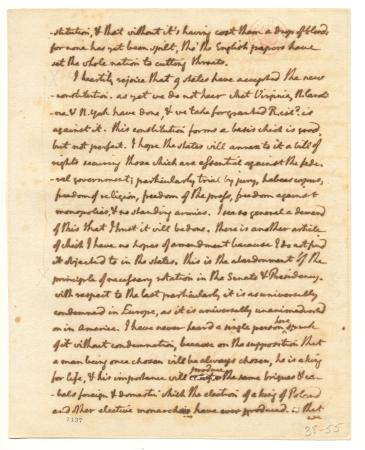 -stitution, & that without it's having cost them a drop of blood,
for none has yet been spilt, tho' the English papers have
set the whole nation to cutting throats.
I heartily rejoice that 9 states have accepted the new
-constitution. as yet we do not hear what Virginia, N. Carol
-na & N. York have done, & we take for granted R. isld. is
against it. this constitution forms a basis which is good,
but not perfect. I hope the states will annex to it a bill of
rights securing those which are essential against the fede-
-ral government; particularly trial by jury, habeas corpus,
freedom of religion, freedom of the press, freedom against
monopolies, & no standing armies. I see so general a demand
of this that I trust it will be done. there is another article
of which I have no hopes of amendment because I do not find
it objected to in the states. this is the abandonment of the
principle of necessary rotation in the Senate & Presidency.
with respect to the last particularly it is as universally
condemned in Europe, as it is universally unanimadverted
on in America. I have never heard a single person here speak
of it without condemnation, because on the supposition that
a man being once chosen will be always chosen, he is a king
for life, & his importance will produce the same brigues & ca-
-bals foreign & domestic which the election of a king of Poland
and other elective monarchies have ever produced. so that
we
7137
38-55